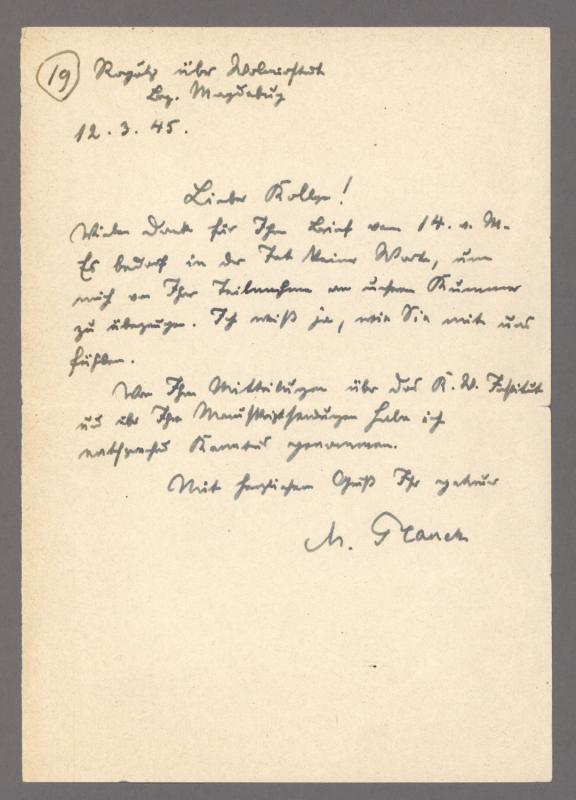 19
Rogätz über Wolmirstedt
Bez. Magdeburg
12. 3. 45.
Lieber Kollege!
Vielen Dank für Ihren Brief vom 14. v. M.
Es bedarf in der Tat keiner Worte, um
mich von Ihrer Teilnahme an unserem Kummer
zu überzeugen. Ich weiß ja, wie Sie mit uns
fühlen.
Von Ihren Mitteilungen über das K. W. Institut
und über Ihre Manuskriptsendungen habe ich
entsprechend Kenntnis genommen.
Mit herzlichem Gruß Ihr getreuer
M. Planck